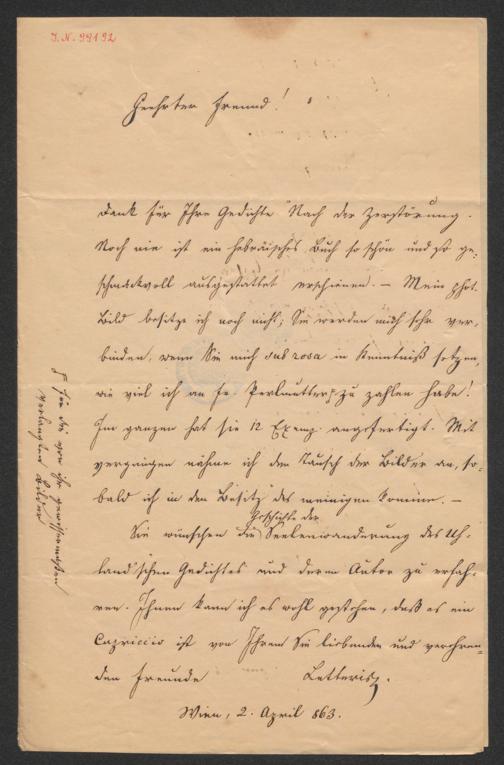 J. N. 99192
Geehrter Freund!
Dank für Ihre Gedichte "Nach der Zerstörung.
Noch nie ist ein hebräisches Buch so schön und so ge-
schmackvoll ausgestattet erschienen. — Mein phot.
Bild besitze ich noch nicht; Sie werden mich sehr ver-
binden, wenn Sie mich sub rosa in Kenntniß setzen,
wie viel ich an Fr Perlmutter zu zahlen habe!
Im ganzen hat sie 12 Exemp. angefertigt. Mit
vergnügen nähme ich den Tausch der Bilder an, so-
bald ich in den Besitz des meinigen komme. —
Sie wünschen die Geschichte der Seelenwanderung des Uh-
land'schen Gedichtes und deren Autor zu erfah-
ren. Ihnen kann ich es wohl gestehen, daß es ein
Capriccio ist von Ihrem Sie liebenden und verehren-
den Freunde Letteris.
Wien, 2. April 863.
für die von ihr
verlangten Bilder